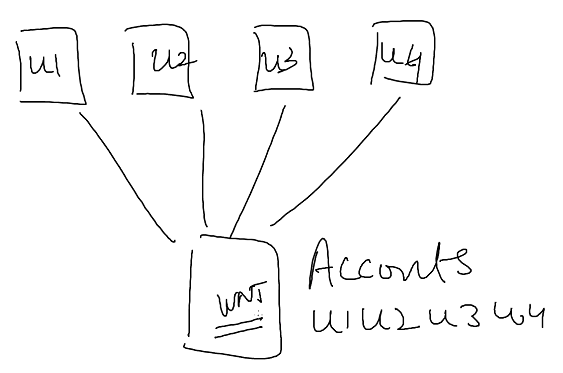 U1 U2 U3 U4
WNT
Acconts
U1 U2 U3 U4